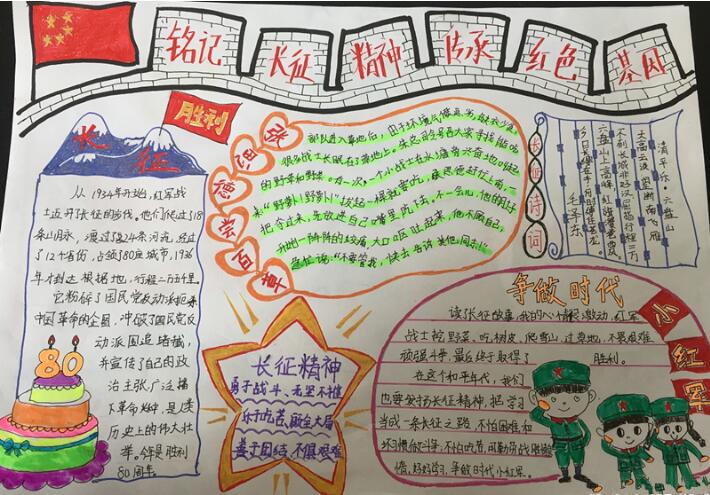 铭记 长征 精神 传承 红色 基因
胜利
长征
从1934年开始,红军战
士迈开长征的步伐。他们做过18
条山脉,渡过24条河流,经过
了12个省份,占领了80座城市,1936
年才到达根据地,行程二万五里。
它粉碎了国民党反动派扼杀
中国革命的企图,冲破了国民党反
动派围追堵截,
并宣传了自己的政
治主张广泛播
下革命火种,是人类
历史上的伟大壮
举。今年是胜利
80周年。
80
张德江尝百草
部队进入草地后,由于环境
野菜和野草。有一次,一个小战士在水塘旁兴奋地叫起
来:“野芹!野芹!”拔起一棵
抢过来,先放进自己嘴里吃下去,不一会儿,他的
一阵阵的绞痛,大口呕吐起来,他不顾自己,
急忙说:“不要管我,快去告诉其他同志!”
长征诗词
清平乐·六盘山
天高云淡,望断南飞雁
不到长城非好汉,屈指行程二万
六盘山上高峰,红旗漫卷西风
今日长缨在手,何时缚住苍龙。
毛泽东
长征精神
勇于战斗、无坚不摧
乐于吃苦、顾全大局
善于团结、不惧艰难
争做时代
小红军
读长征故事,我的心情很激动,红军
战士吃野菜、吃树皮、爬雪山、过草地,不畏艰难
顽强斗争,最后终于取得了胜利。
在这个和平年代,我们
也要发扬长征精神,把学习
当成一条长征之路,不怕困难和
坏习惯做斗争,不怕吃苦,用勤劳战胜懒
惰,好好学习,争做时代小红军。